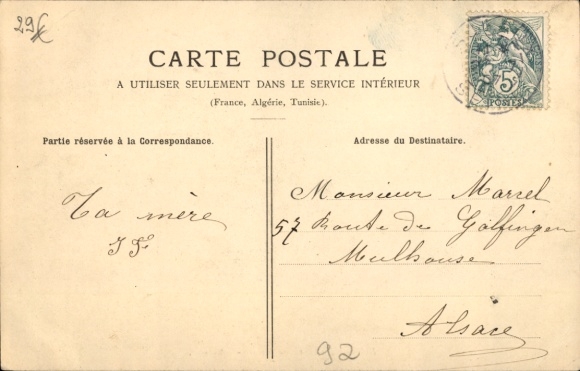 29€
CARTE POSTALE
A UTILISER SEULEMENT DANS LE SERVICE INTÉRIEUR
(France, Algérie, Tunisie).
5c
POSTES
Partie réservée à la Correspondance.
Ta mère
Adresse du Destinataire.
Monsieur Marcel
57 Route de Golfingen
Mulhouse
Alsace
92